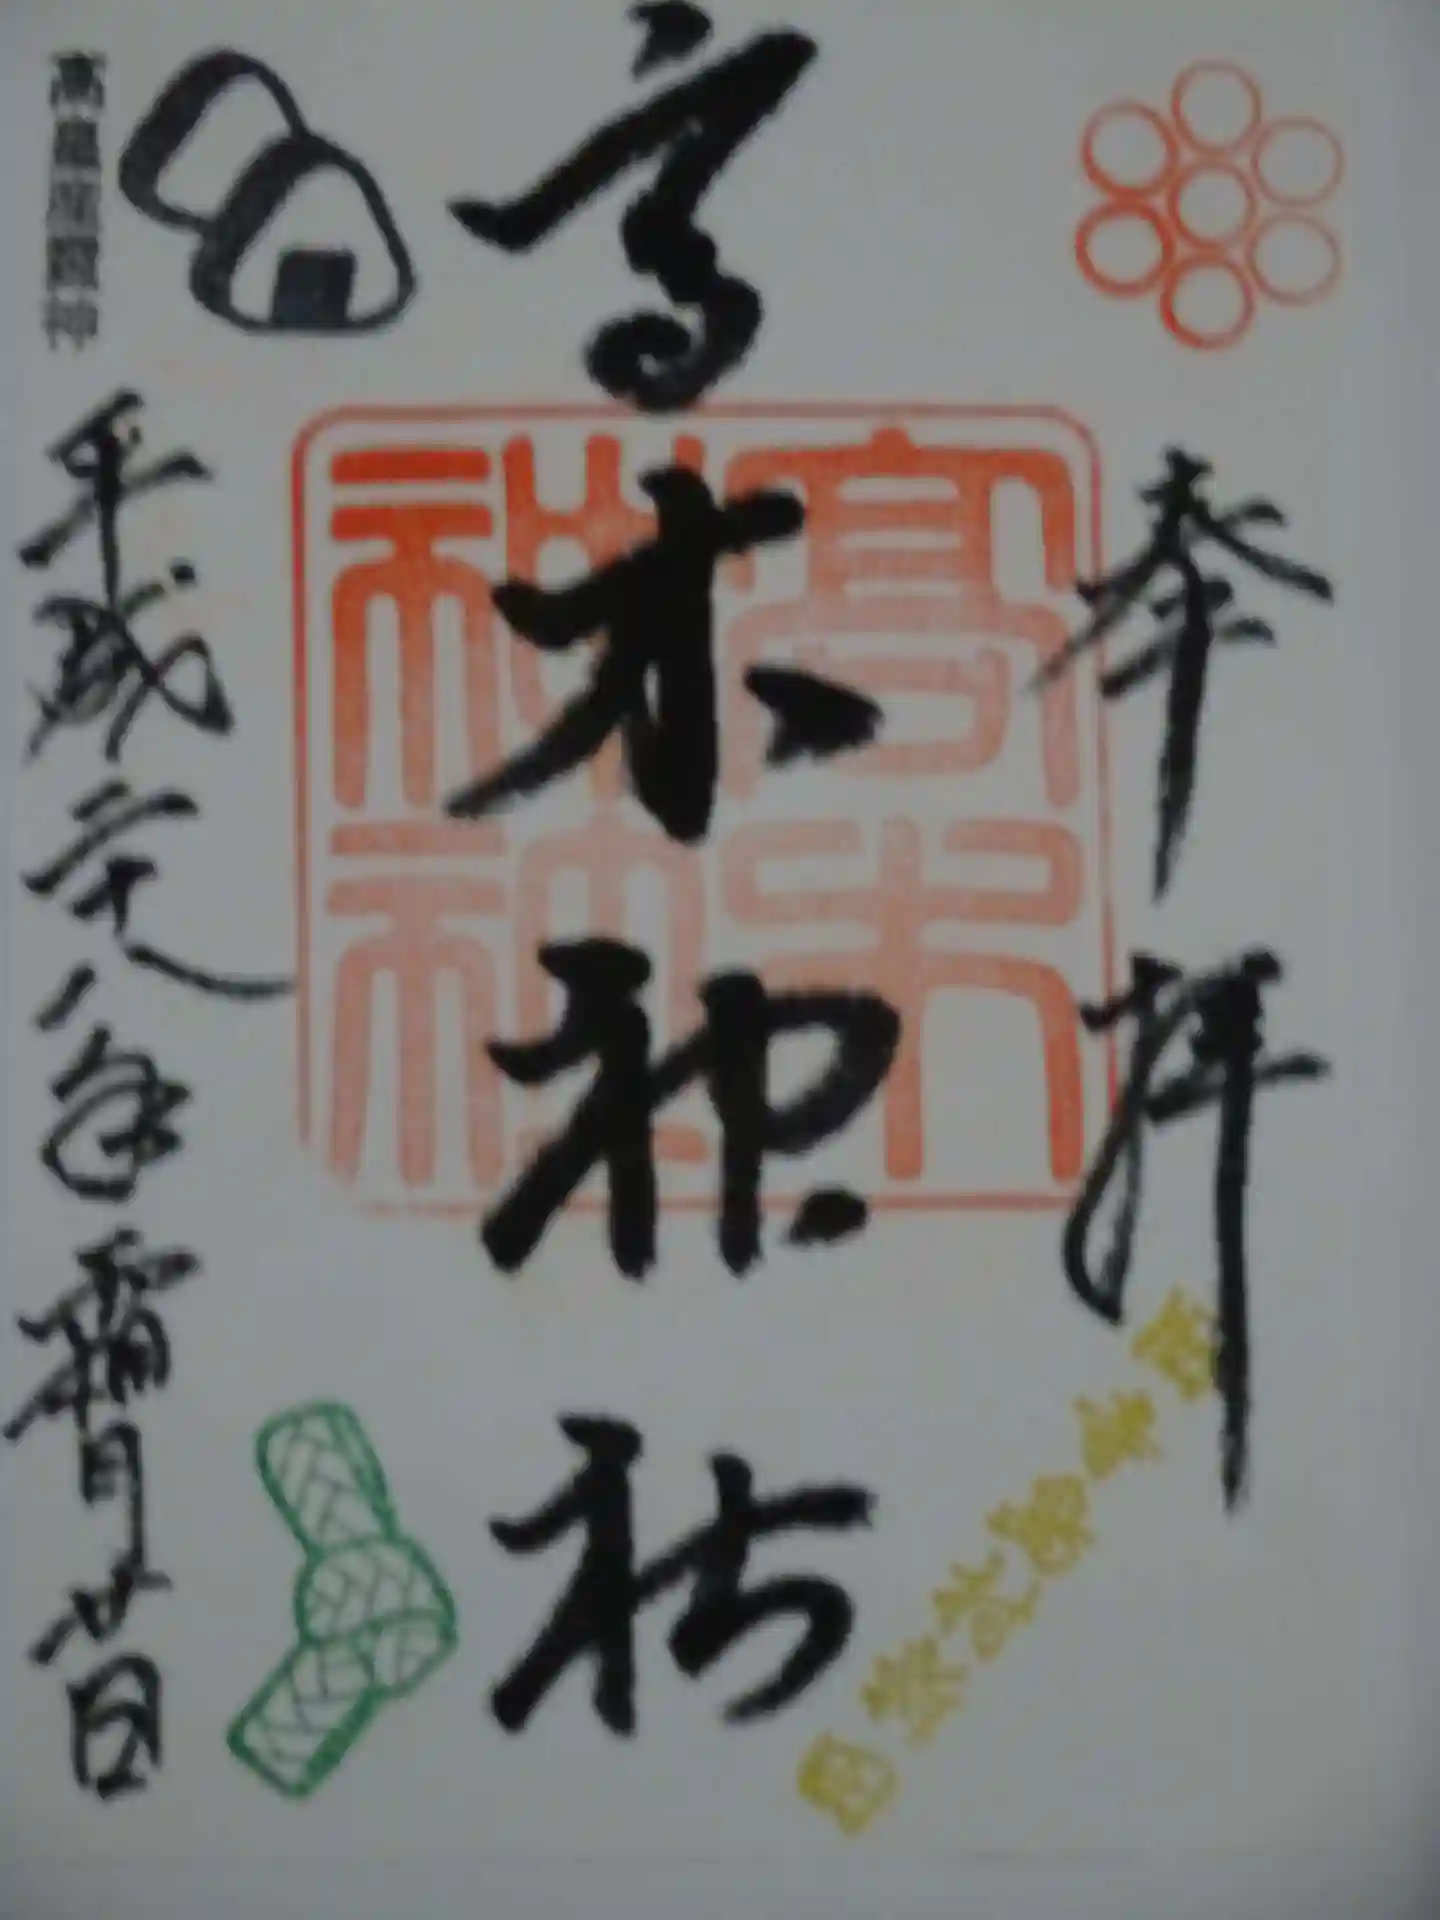 奉拝
高木神社
高木神社
平成二十八年霜月廿日
高皇産霊神